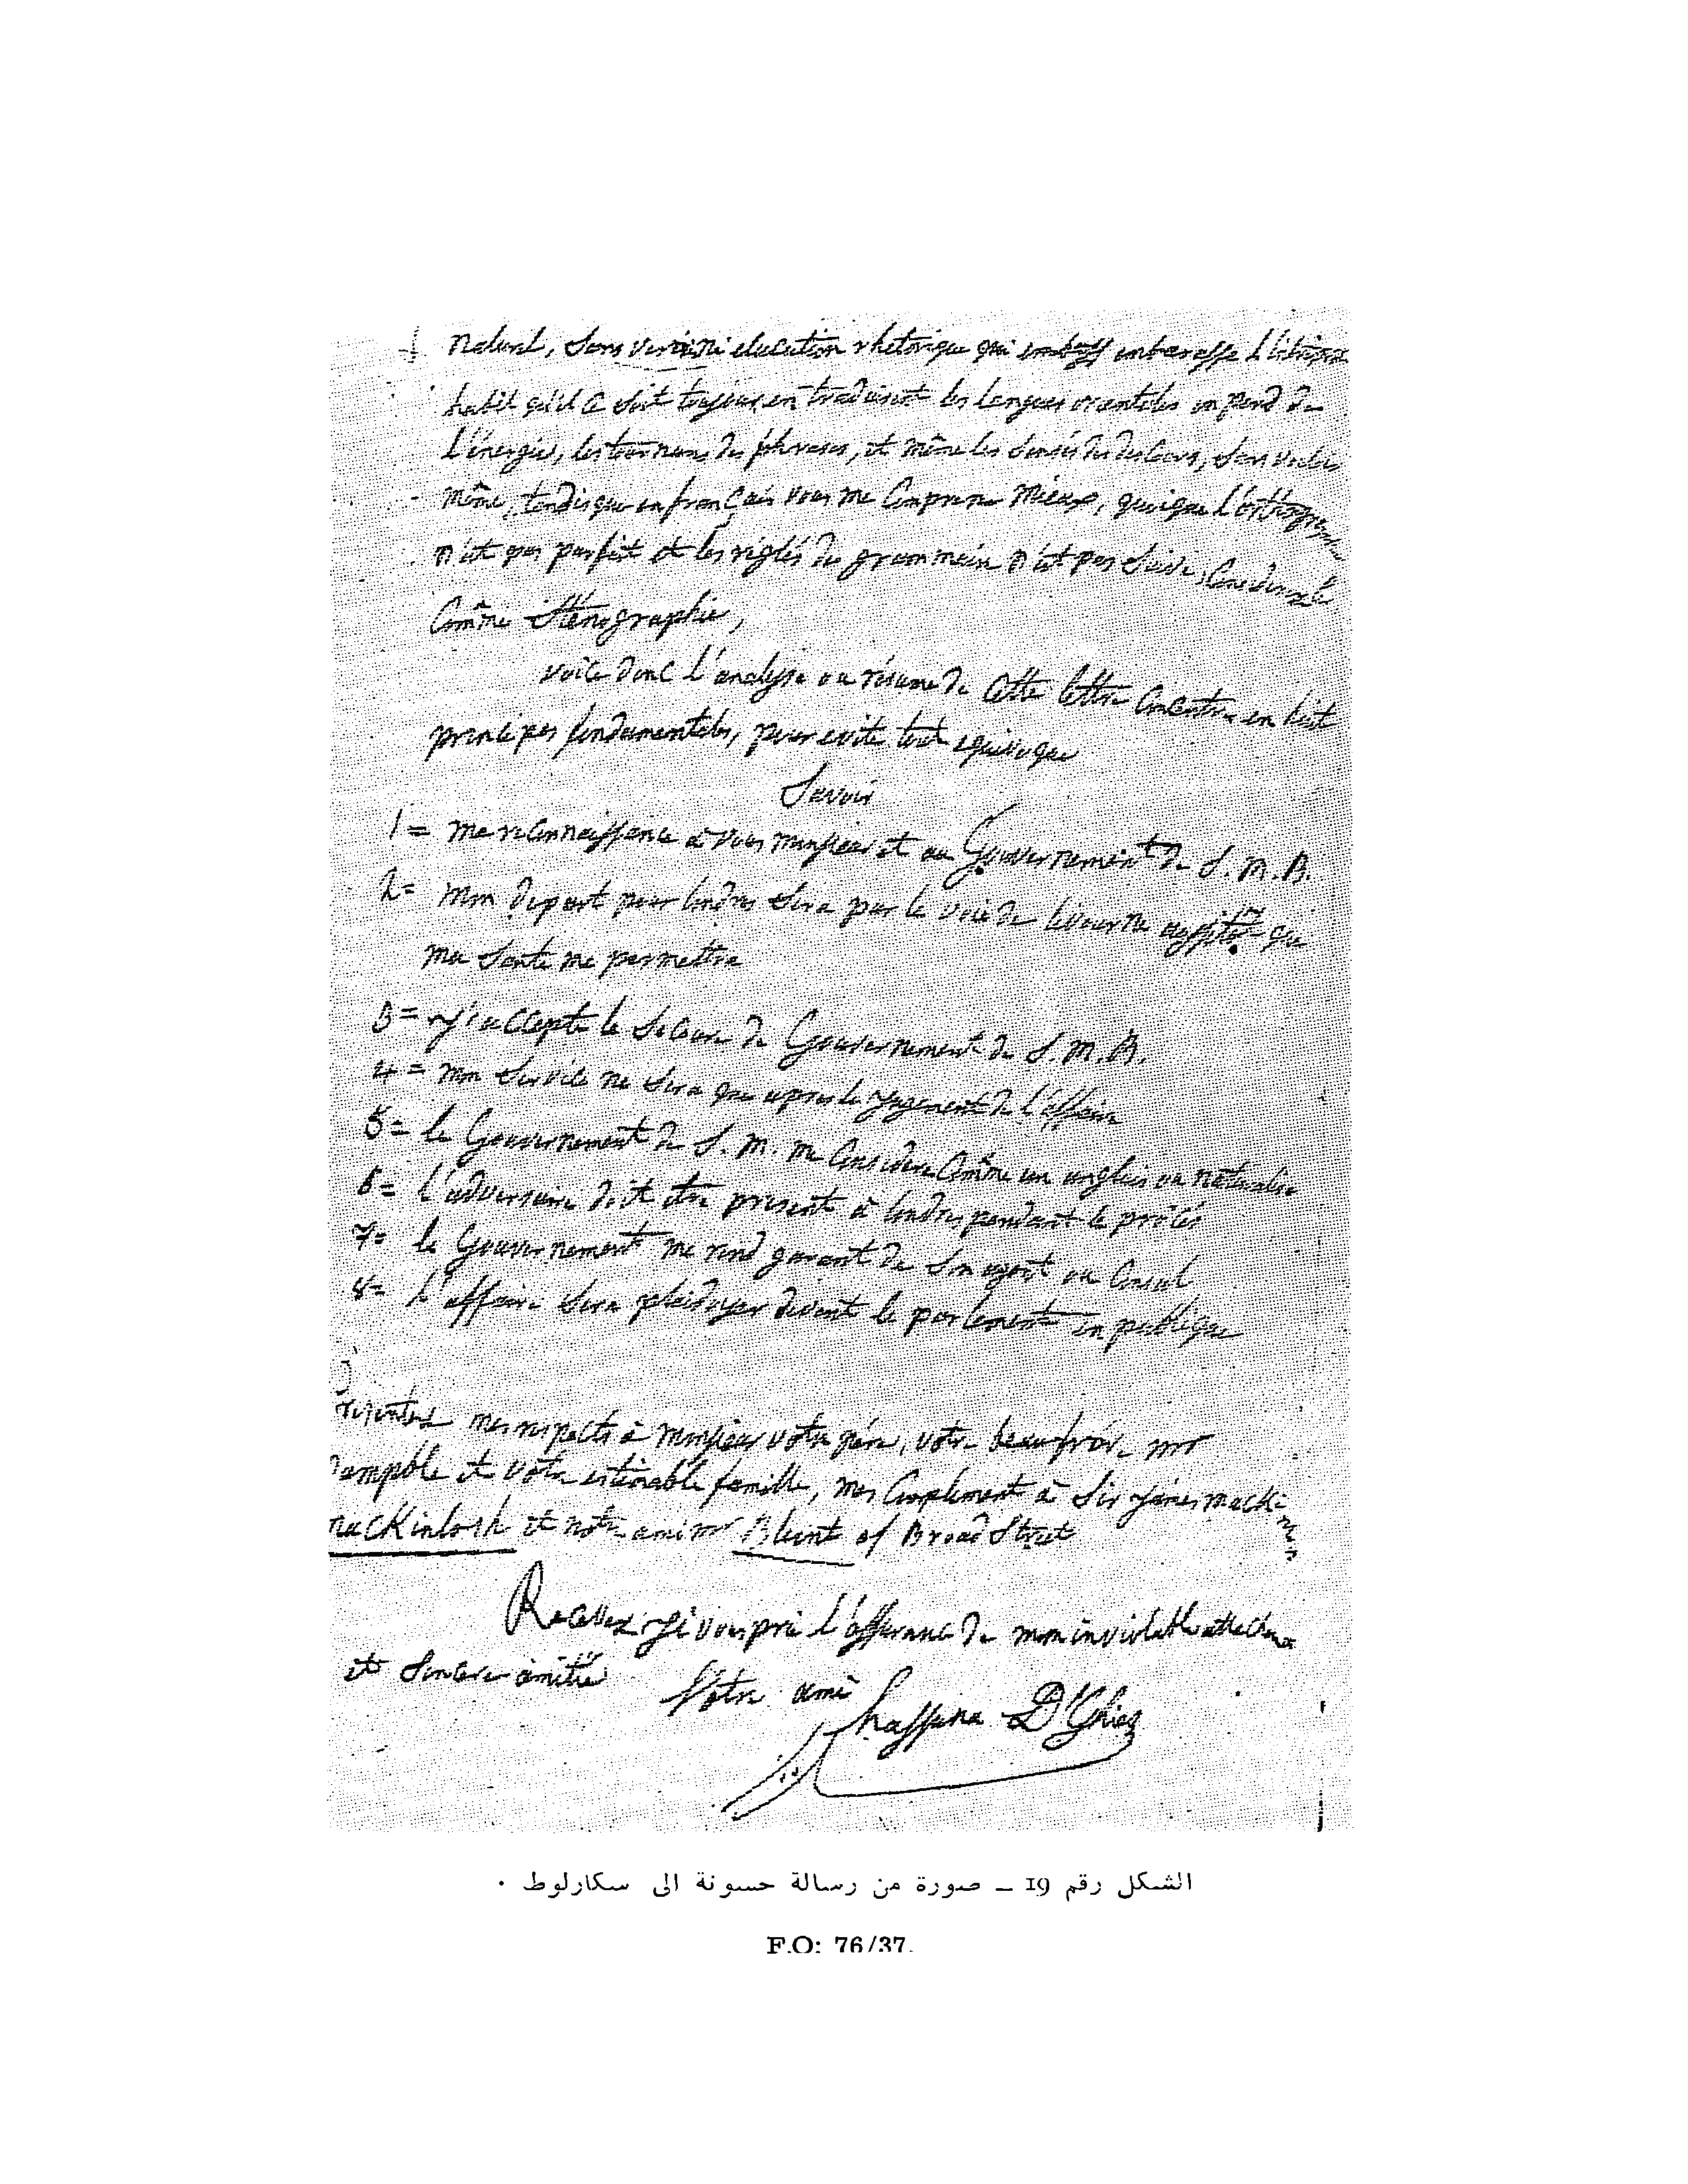 naturel, sans elocution rhetorique qui embarasse
habil qu'il ce soit toujour en traduisant les langues orientales on perd de
l'énergie, les tournens des phrases, et même les
même, tandisque en français vous me comprene mieux, quoique l'orthographe
n'est pas parfait et les réglés du grammair n'est pas suivi,
comme sténographie,
voici donc l'analyse ou résume de cette lettre en huit
principes fondamentales, pour evite tout equivoque
Savoir
1= me reconnaissance à vous monsieur et au Gouvernement de S.M.B.
2= mon depart pour londres sera par le voie de livourne que
ma santé me permettra
3= j'accepte le secour de Gouvernement de S.M.B.
4= mon service ne sera que apres le jugement de l'affair
5= le Gouvernement de S.M. me considere comme un anglais ou naturalise
6= l'adversaire doit etre present à londres pendant le procés
7= le Gouvernement me rend garant de son agent ou Consul
8= l'affaire sera plaidoyer devant le parlement en publique
mes respects à monsieur votre père, votre beaufrère mr
et votre estimable famille, mes complement à Sir James mack-
mackintosh et notre ami mr Blunt of Broad Street
Recevez je vous prie l'assurance de mon inviolable
et sincere amitié
Votre ami
hassuna D'Ghies
الشكل رقم 19 ــ صورة من رسالة حسونة الى سكارلوط .
F.O: 76/37.